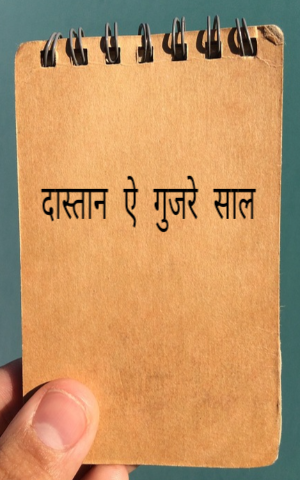 दास्तान ऐ गुजरे साल